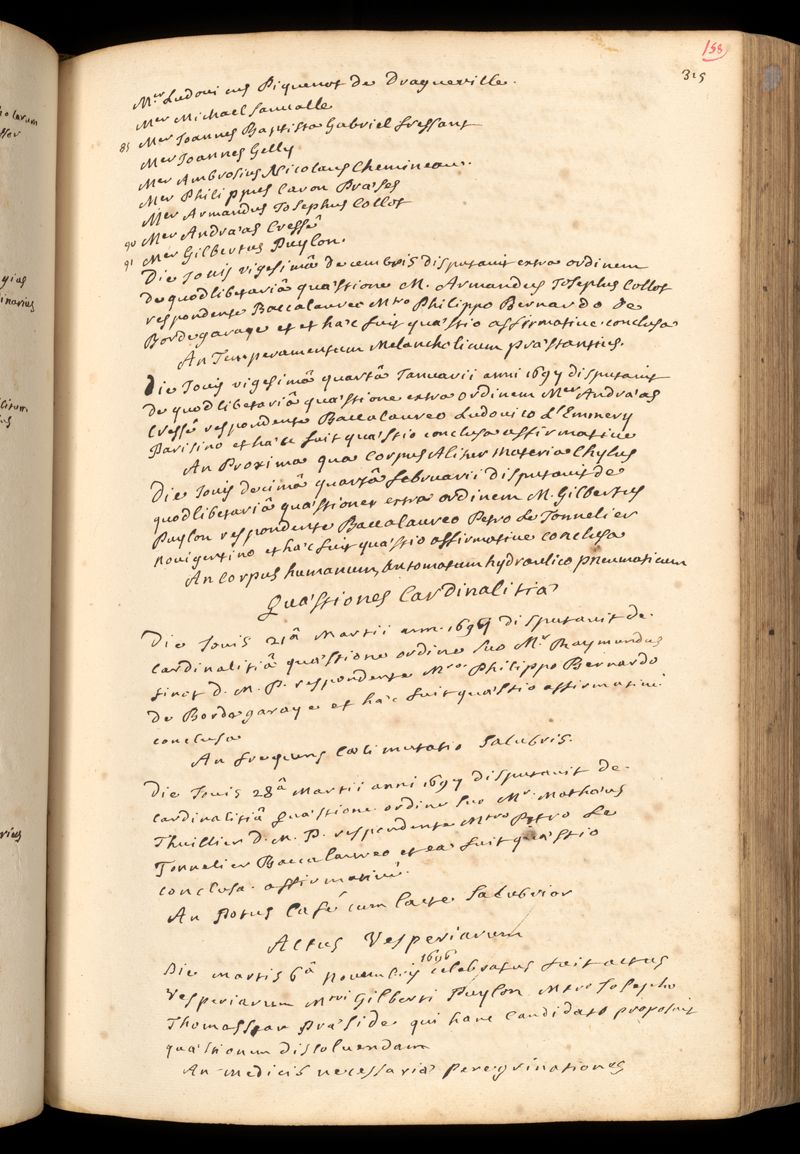 158
315
Mer Ludovicus Piquenot de Dragueville.
Mer Michael Sauvalle
85 Mer Joannes Baptista Gabriel Fressant
Mer Joannes Gelly
Mer Ambrosius Nicolaus Chemineau.
Mer Philippus Caron Præses
Mer Armandus Josephus Collot
90 Mer Andræas Cressé
91 Mer Gilbertus Puylon.
Die Jouis vigesimâ decembris disputauit extra ordinem
de quodlibetariâ quæstione M. Armandus Josephus Collot
respondente Baccalaureo Mtro Philippo Bernardo de
Bordegaraye et hæc fuit quæstio affirmatiue conclusa
An Temperamentum Melancholicum præstantius.
Die Jouis vigesimâ quartâ Januarii anni 1697 disputauit
de quodlibetariâ quæstione extra ordinem Mer Andræas
Cressé respondente Baccalaureo Ludouico L'Emmery
Parisino et hæc fuit quæstio conclusa affirmatiue
An Proxima qua Corpus Alitur materia Chylus
Die Jouis decimâ quartâ februarii disputauit de
quodlibetariâ quæstiones extra ordinem M. Gilbertus
Puylon respondente Baccalaureo Petro Le Tonnelier
nouigentino et hæc fuit quæstio affirmatiue conclusa
An Corpus humanum, Automatum hydraulico pneumaticum
Quæstiones Cardinalitiæ
Die Jouis 21â Martii ann. 1697 disputauit de
Cardinalitiâ quæstione ordine suo Mr Raymundus
finot D. M. P. respondente Mro Philippo Bernardo
de Bordegaraye et hæc fuit quæstio affirmatiuè
conclusa
An frequens cœli mutatio salubris.
Die Jouis 28â Martii anni 1697 disputauit de
Cardinalitiâ quæstione ordine suo Mr. Mathæus
Thuillier D. M. P. respondente Mtro Petro Le
Tonnelier Baccalaureo et ea fuit quæstio
conclusa affirmatiuè.
An Potus Café cum lacte salubrior
Actus Vesperiarum
Die martis 6â Nouembris 1696 celebratus fuit actus
Vesperiarum Mtri Gilberti Puylon Mtro Josepho
Thomasseau Præside qui hanc Candidato proposuit
quæstionem dissoluendam
An medicis necessariæ peregrinationes